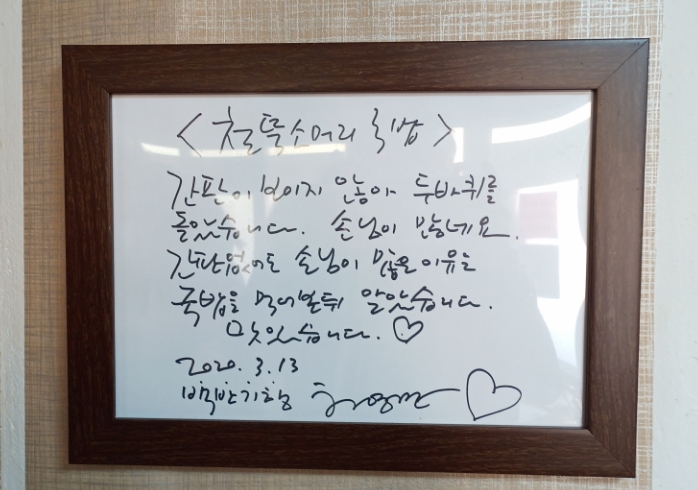 <철뚝소머리국밥>
간판이 보이지 않아 두바퀴를
돌았습니다. 손님이 많네요.
간판없어도 손님이 많을 이유는
국밥을 먹어본뒤 알았습니다.
맛있습니다. ♡
2020. 3. 13
백반기행 허영만 ♡